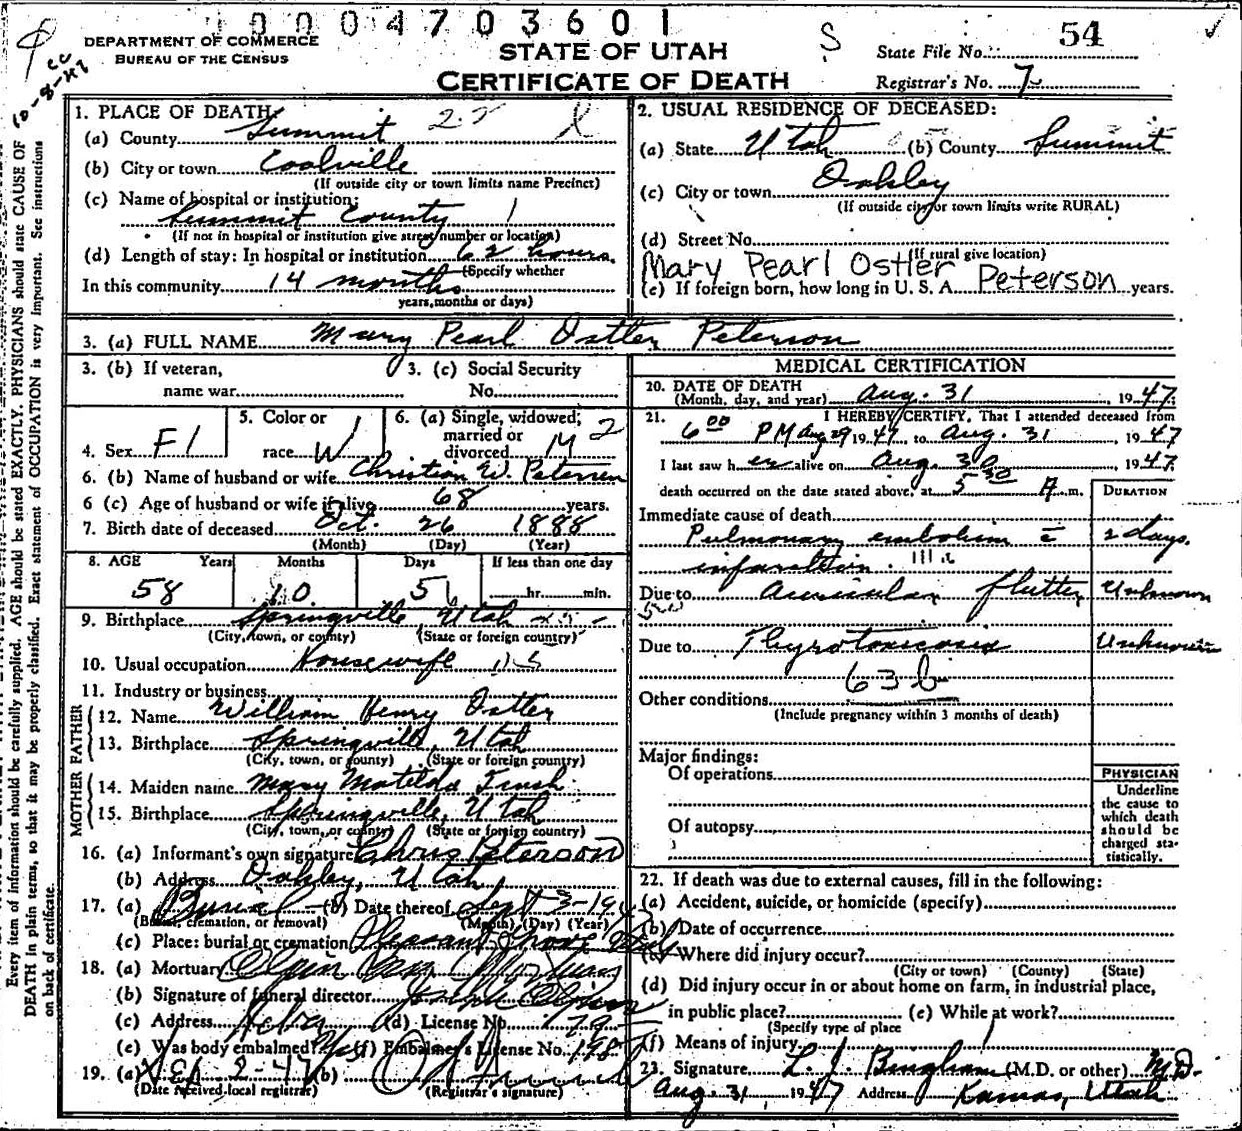 0004703601
DEPARTMENT OF COMMERCE
BUREAU OF THE CENSUS
STATE OF UTAH
CERTIFICATE OF DEATH
S
54
State File No.
Registrar's No. 7
10-8-47
Every item of information should be carefully supplied. AGE should be stated EXACTLY. PHYSICIANS should state CAUSE OF
DEATH in plain terms, so that it may be properly classified. Exact statement of OCCUPATION is very important. See instructions
on back of certificate.
1. PLACE OF DEATH:
(a) County Summit
(b) City or town Coalville
(If outside city or town limits name Precinct)
(c) Name of hospital or institution:
Summit County
(If not in hospital or institution give street number or location)
(d) Length of stay: In hospital or institution 62 hours.
(Specify whether
In this community 14 months
years, months or days)
2. USUAL RESIDENCE OF DECEASED:
(a) State Utah (b) County Summit
(c) City or town Oakley
(If outside city or town limits write RURAL)
(d) Street No.
(If rural give location)
Mary Pearl Ostler Peterson
(e) If foreign born, how long in U. S. A. years.
3. (a) FULL NAME Mary Pearl Ostler Peterson
3. (b) If veteran,
name war
3. (c) Social Security
No.
4. Sex F
5. Color or
race W
6. (a) Single, widowed,
married or
divorced M 2
6. (b) Name of husband or wife Christian W. Peterson
6 (c) Age of husband or wife if alive 68 years.
7. Birth date of deceased Oct. 26 1888
(Month) (Day) (Year)
8. AGE Years Months Days If less than one day
58 10 5 hr. min.
9. Birthplace Springville, Utah
(City, town, or county) (State or foreign country)
10. Usual occupation Housewife
11. Industry or business
FATHER
12. Name William Henry Ostler
13. Birthplace Springville, Utah
(City, town, or county) (State or foreign country)
MOTHER
14. Maiden name Mary Matilda
15. Birthplace Springville, Utah
(City, town, or county) (State or foreign country)
16. (a) Informant's own signature Chris Peterson
(b) Address Oakley, Utah
17. (a) Burial (b) Date thereof Sept 3-1947
(Burial, cremation, or removal) (Month) (Day) (Year)
(c) Place: burial or cremation Pleasant Grove
18. (a) Mortuary Olpin
(b) Signature of funeral director Joseph Olpin
(c) Address Heber (d) License No. 79
(e) Was body embalmed? Yes (f) Embalmer's License No.
19. (a) Sep 2-47 (b)
(Date received local registrar) (Registrar's signature)
MEDICAL CERTIFICATION
20. DATE OF DEATH
(Month, day, and year) Aug. 31 1947.
21. I HEREBY CERTIFY, That I attended deceased from
6 00 PM Aug 29 1947, to Aug. 31, 1947
I last saw her alive on Aug. 30, 1947.
death occurred on the date stated above, at 5 30 A m.
DURATION
Immediate cause of death
Pulmonary embolism c̄ 2 days.
infarction.
Due to Auricular flutter Unknown
Due to Thyrotoxicosis Unknown
63 b
Other conditions
(Include pregnancy within 3 months of death)
Major findings:
Of operations
Of autopsy
PHYSICIAN
Underline
the cause to
which death
should be
charged sta-
tistically.
22. If death was due to external causes, fill in the following:
(a) Accident, suicide, or homicide (specify)
(b) Date of occurrence
(c) Where did injury occur?
(City or town) (County) (State)
(d) Did injury occur in or about home on farm, in industrial place,
in public place? (e) While at work?
(Specify type of place
(f) Means of injury
23. Signature L. J. Bingham (M.D. or other) M.D.
Aug. 31 1947 Address Kamas, Utah